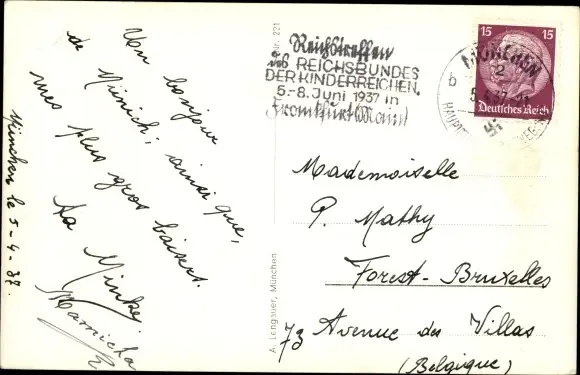 Un bonjour
de Münich, ainsi que,
mes plus gros baisers.
ta Minke.
Mamicha
München le 5-4-37.
Nr. 221
A. Lengauer, München
Reichstreffen
des REICHSBUNDES
DER KINDERREICHEN
5.-8. Juni 1937 in
Frankfurt (Main)
MÜNCHEN
2
b
5.4.37
HAUPT
15 15
Deutsches Reich
Mademoiselle
P. Mathy
Forest-Bruxelles
73 Avenue des Villas
(Belgique)